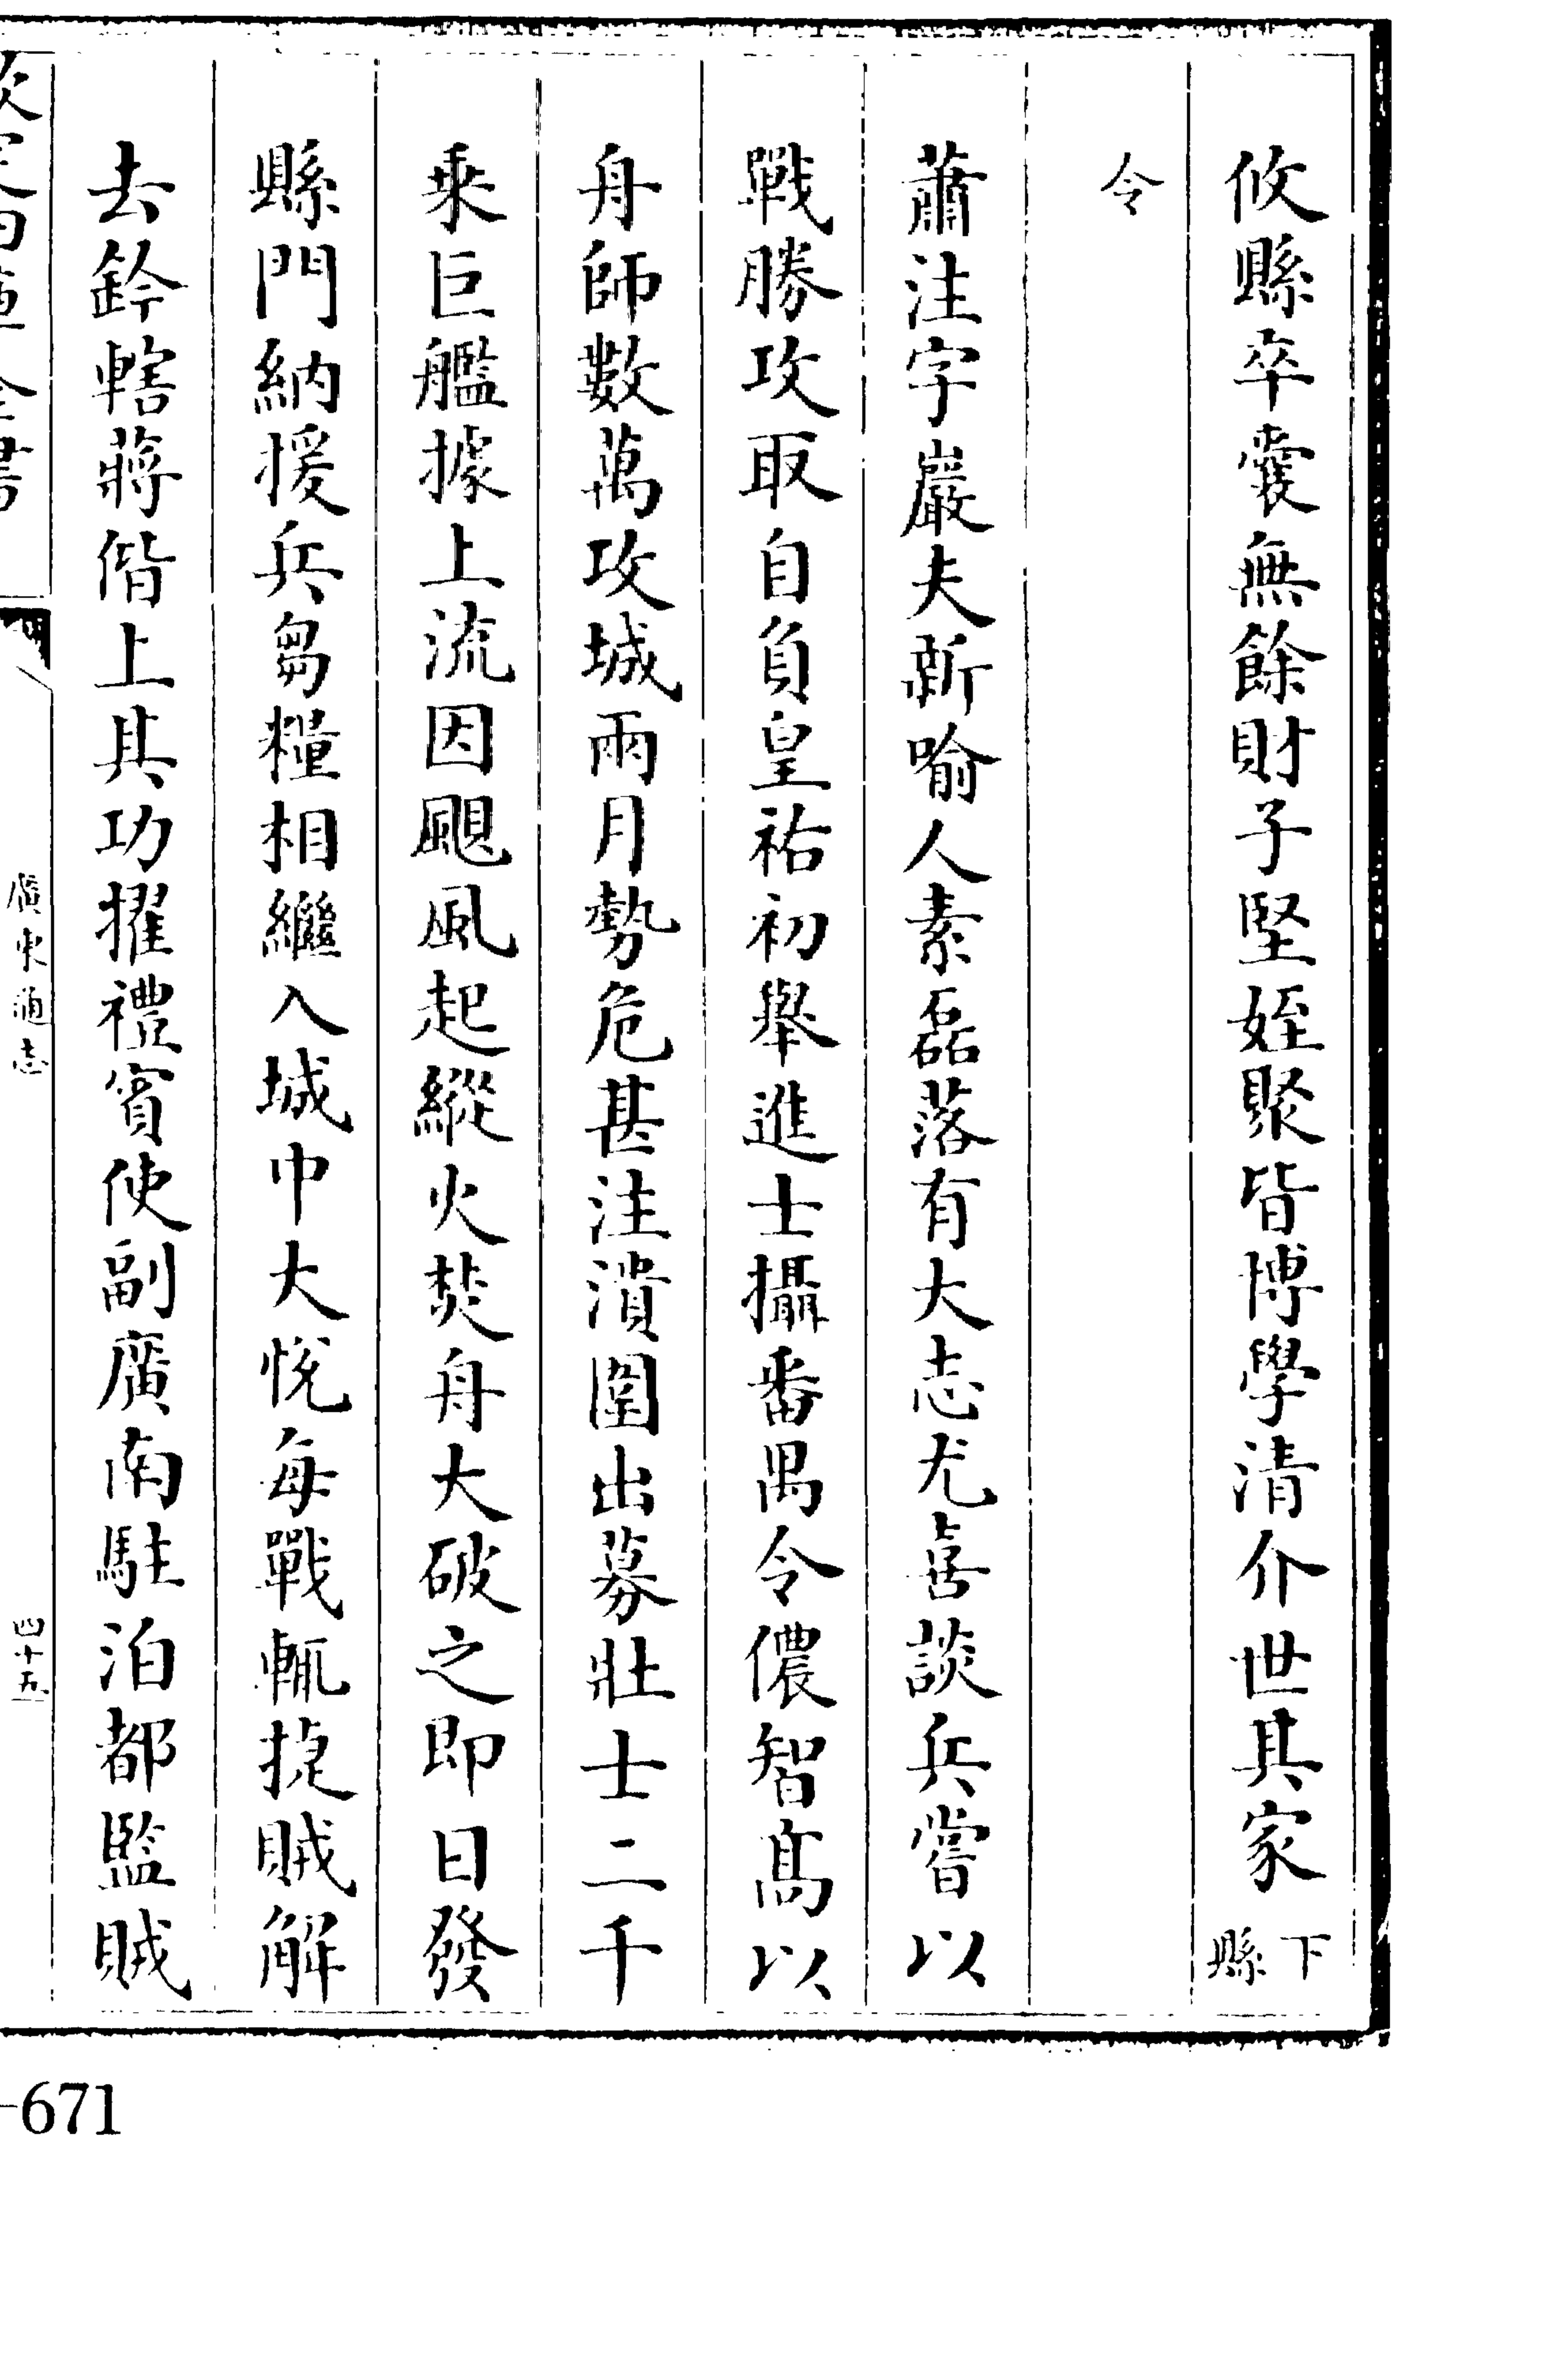 攸縣卒囊無餘財子堅姪聚皆博學清介世其家下縣
令
蕭注字巖夫新喻人素磊落有大志尤喜談兵嘗以
戰勝攻取自負皇祐初舉進士攝番禺令儂智高以
舟師數萬攻城兩月勢危甚注潰圍出募壯士二千
乗巨艦據上流因颶風起縱火焚舟大破之即日發
縣門納援兵芻糧相繼入城中大悅每戰輒捷賊解
去鈐轄蔣偕上其功擢禮賓使副廣南駐泊都監賊
廣東通志
四十五
-671